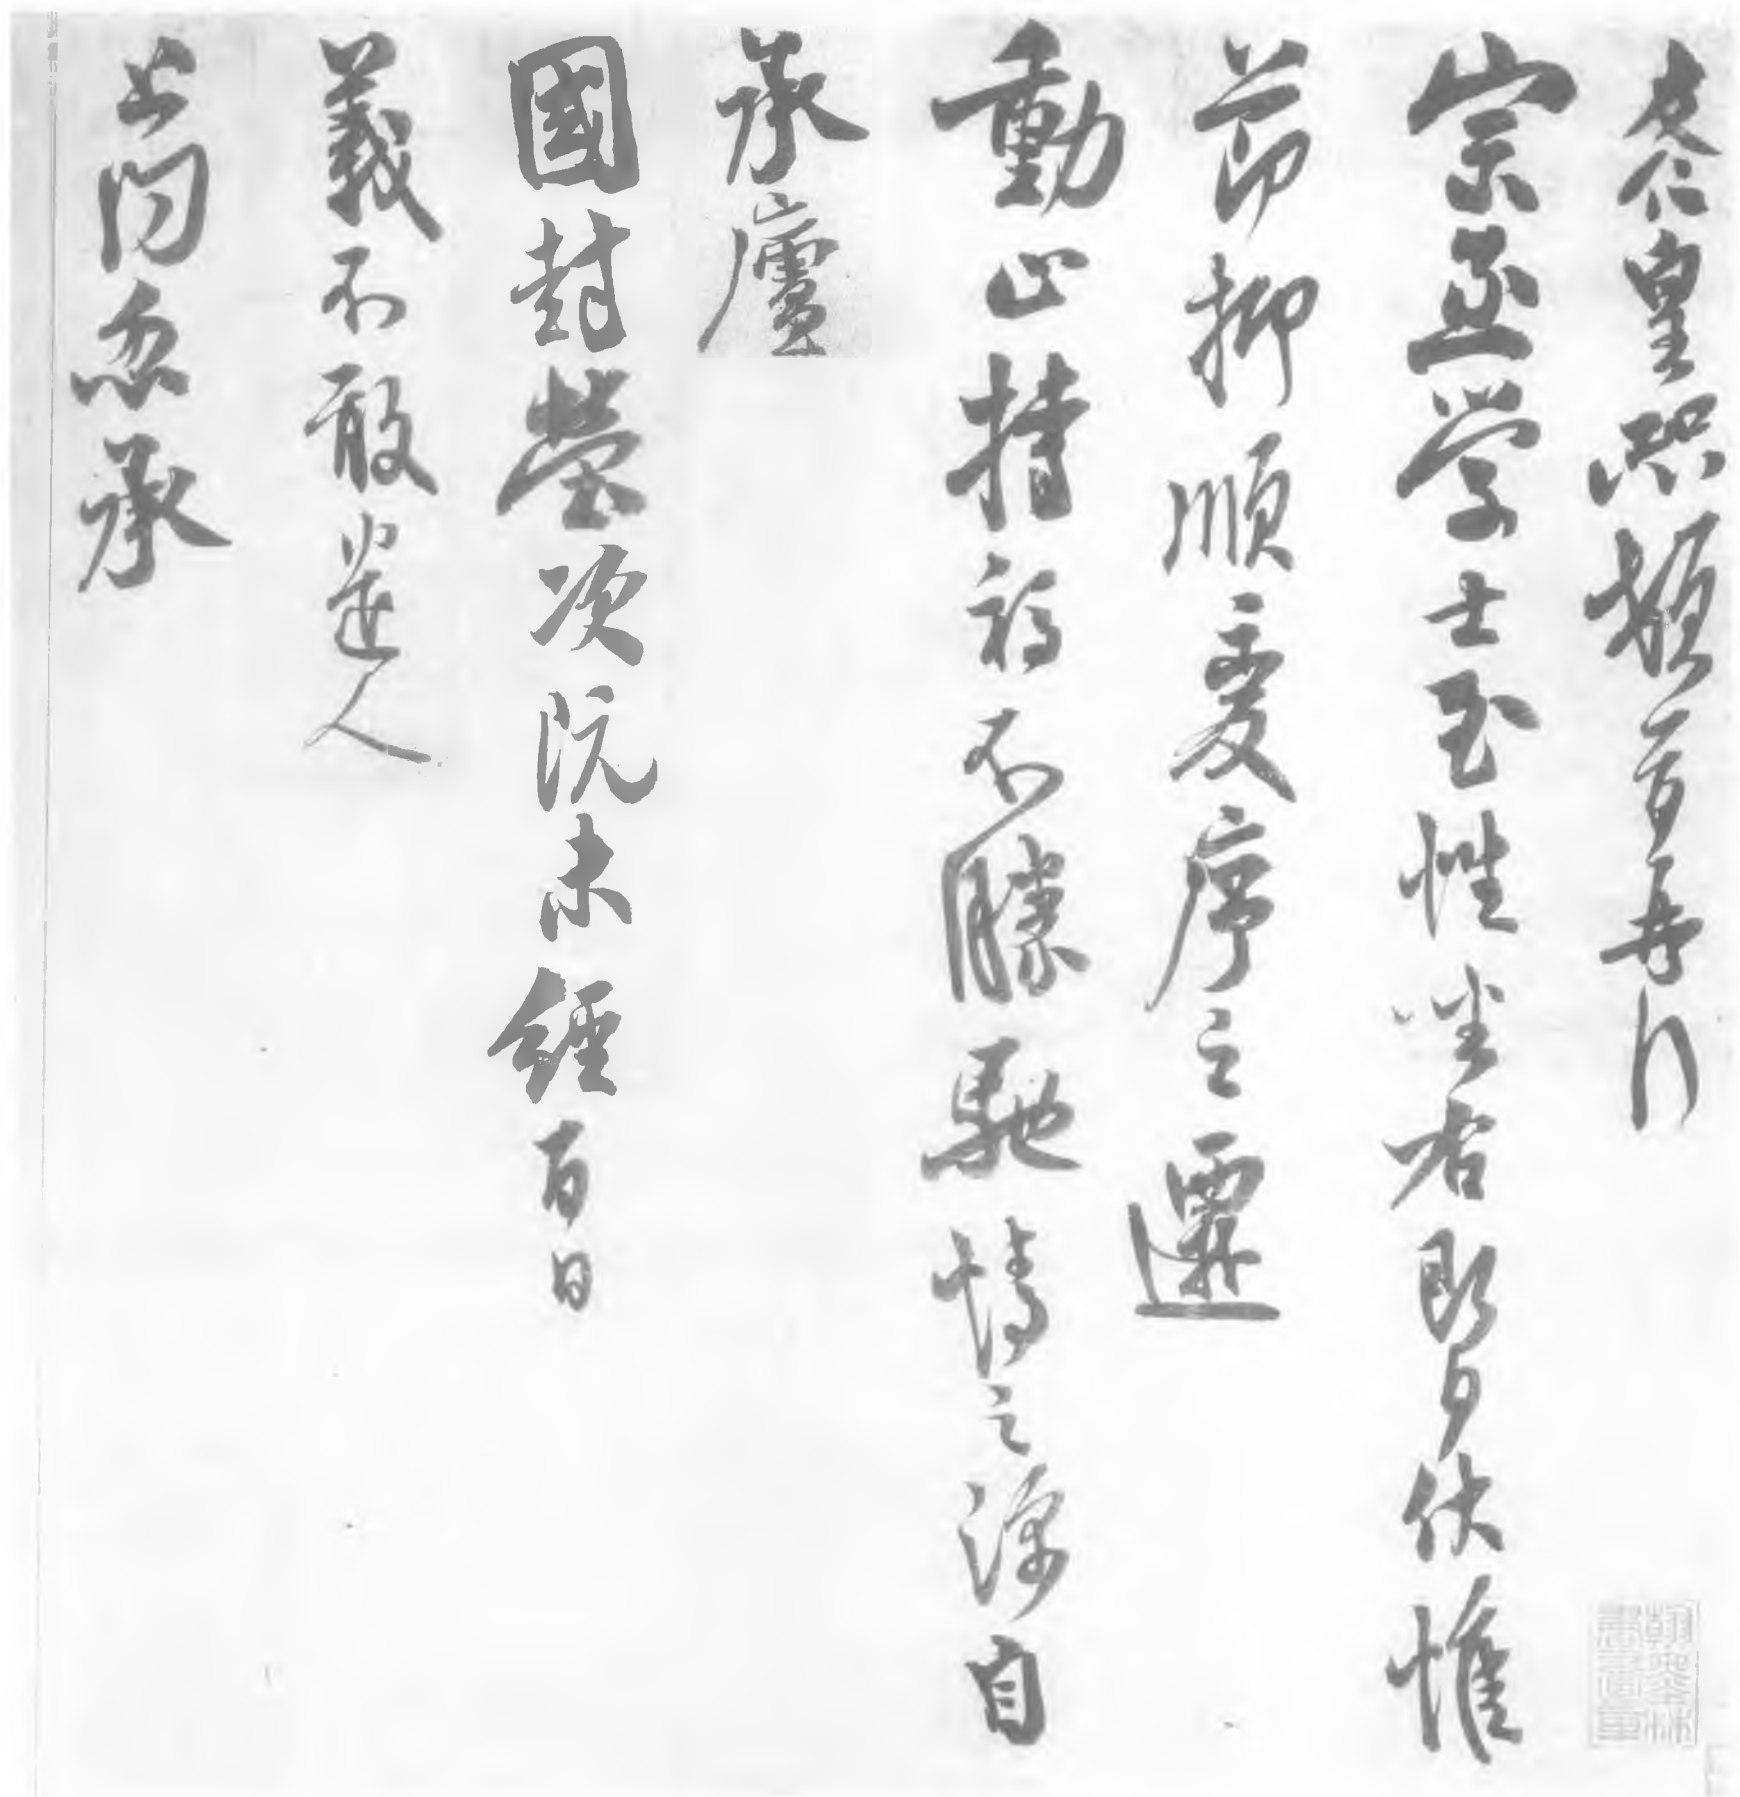 友仁皇恐頓首再拜
宗丞学士至性坐右即日伏惟
節抑順變序之遷
動止持福不勝馳情之深自
承廬
國封塋次阮未經百日
義不敢遣人
上問忽承